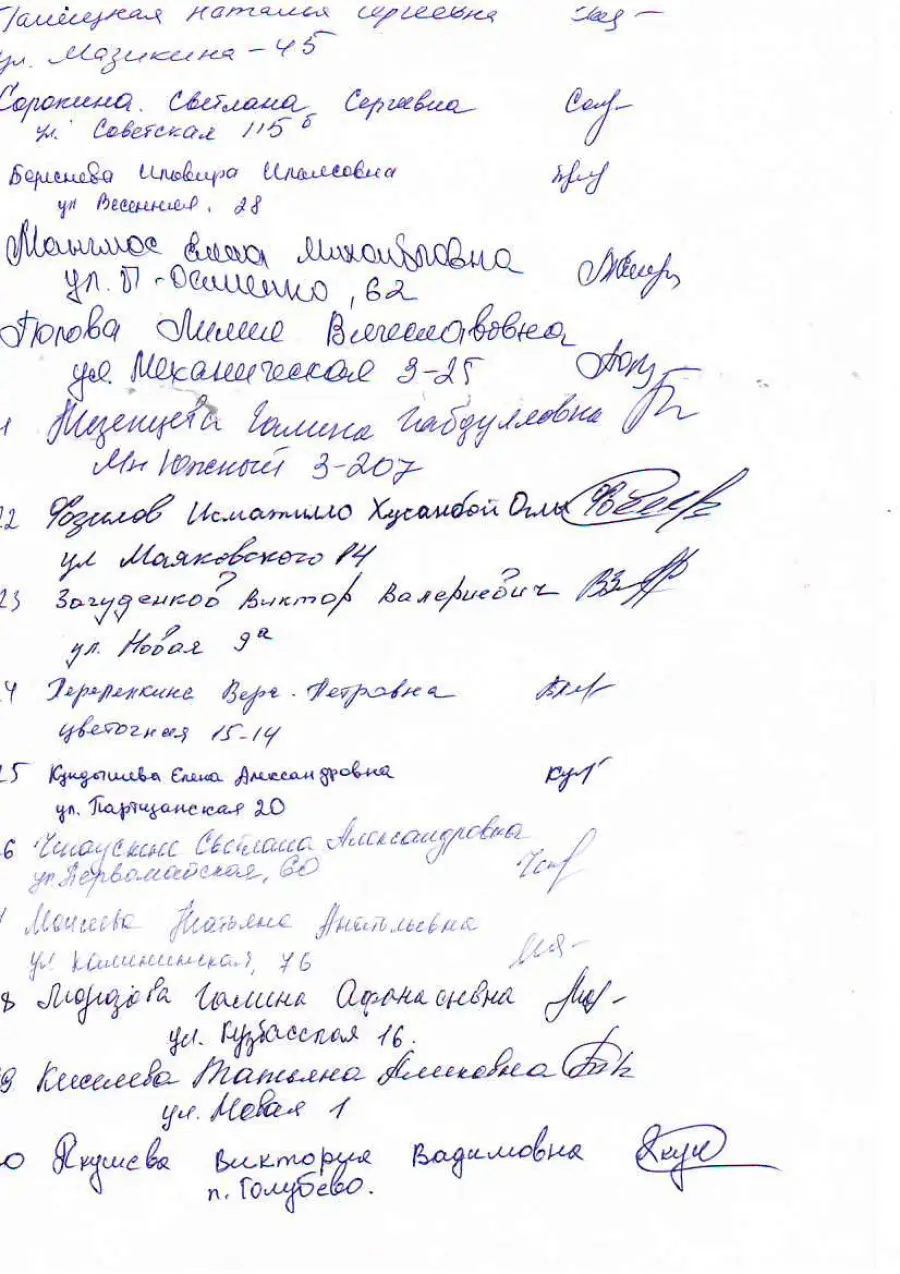 Наталья Сергеевна
ул. Мазикина - 45
Сорокина Светлана Сергеевна
ул. Советская 115 б
Береснева
ул Весенняя, 28
Елена Михайловна
ул. П-Осипенко, 62
Попова Лилия Вячеславовна
ул. Механическая 3-25
Мезенцева Галина Габдулловна
Мн Южный 3-207
22 Фозилов Исматилло Хусанбой Огли
ул Маяковского 84
23 Загуденков Виктор Валериевич
ул. Новая 9а
4 Вера Петровна
цветочная 15-14
25 Елена Александровна
ул. Партизанская 20
6 Светлана Александровна
ул. Первомайская, 60
Моисеева Татьяна Анатольевна
ул Калининская, 76
8 Морозова Галина Афанасьевна
ул. Кузбасская 16.
9 Киселева Татьяна Алековна
ул. Новая 1
0 Якушева Виктория Вадимовна
п. Голубево.